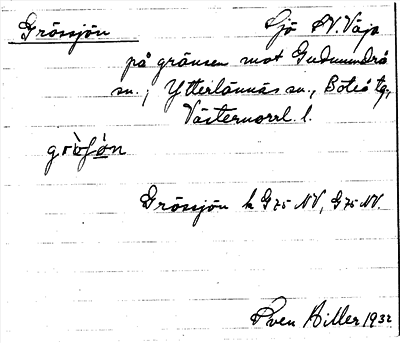 Grössjön Sjö SV. Väja
på gränsen mot Gudmundrå
sn.; Ytterlännäs sn., Boteå tg,
Västernorrl. l.
Grössjön k G75 NV, G75 NV.
Sven Hiller 1932